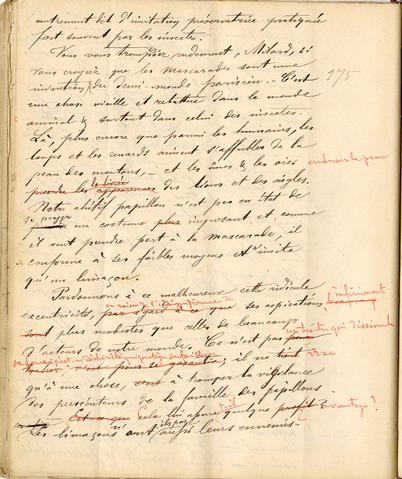 autrement dit d'imitation préservatrice pratiquée
fort souvent par les insectes.
Vous vous tromperiez rudement, Milord, si
vous croyez que les mascarades sont une
invention du demi-monde parisien. — C'est 975
une chose vieille et rebattue dans le monde
animal & surtout dans celui des insectes.
Là, plus encore que parmi les humains, les
loups et les renards aiment s'affubler de la
peau des moutons, — et les ânes & les oies endosser la peau
prendre les apparences des lions et des aigles.
Notre chétif papillon n'est pas en état de
se payer un costume plus imposant et comme
il veut prendre part à la mascarade, il
se conforme à ses faibles moyens et imite
qu'un limaçon.
Pardonnons à ce malheureux cette ridicule
excentricité, que ses aspirations infiniment
sont plus modestes que celles de beaucoup
d'acteurs de notre monde. Ce n'est pas un traître qui dissimule
il ne tient vise
qu'à une chose, c'est à tromper la vigilance
des persécuteurs de la famille des papillons.
Est-ce que Cela lui apure quelque profit? avantage?
Les limaçons n'ont ils pas aussi leurs ennemis